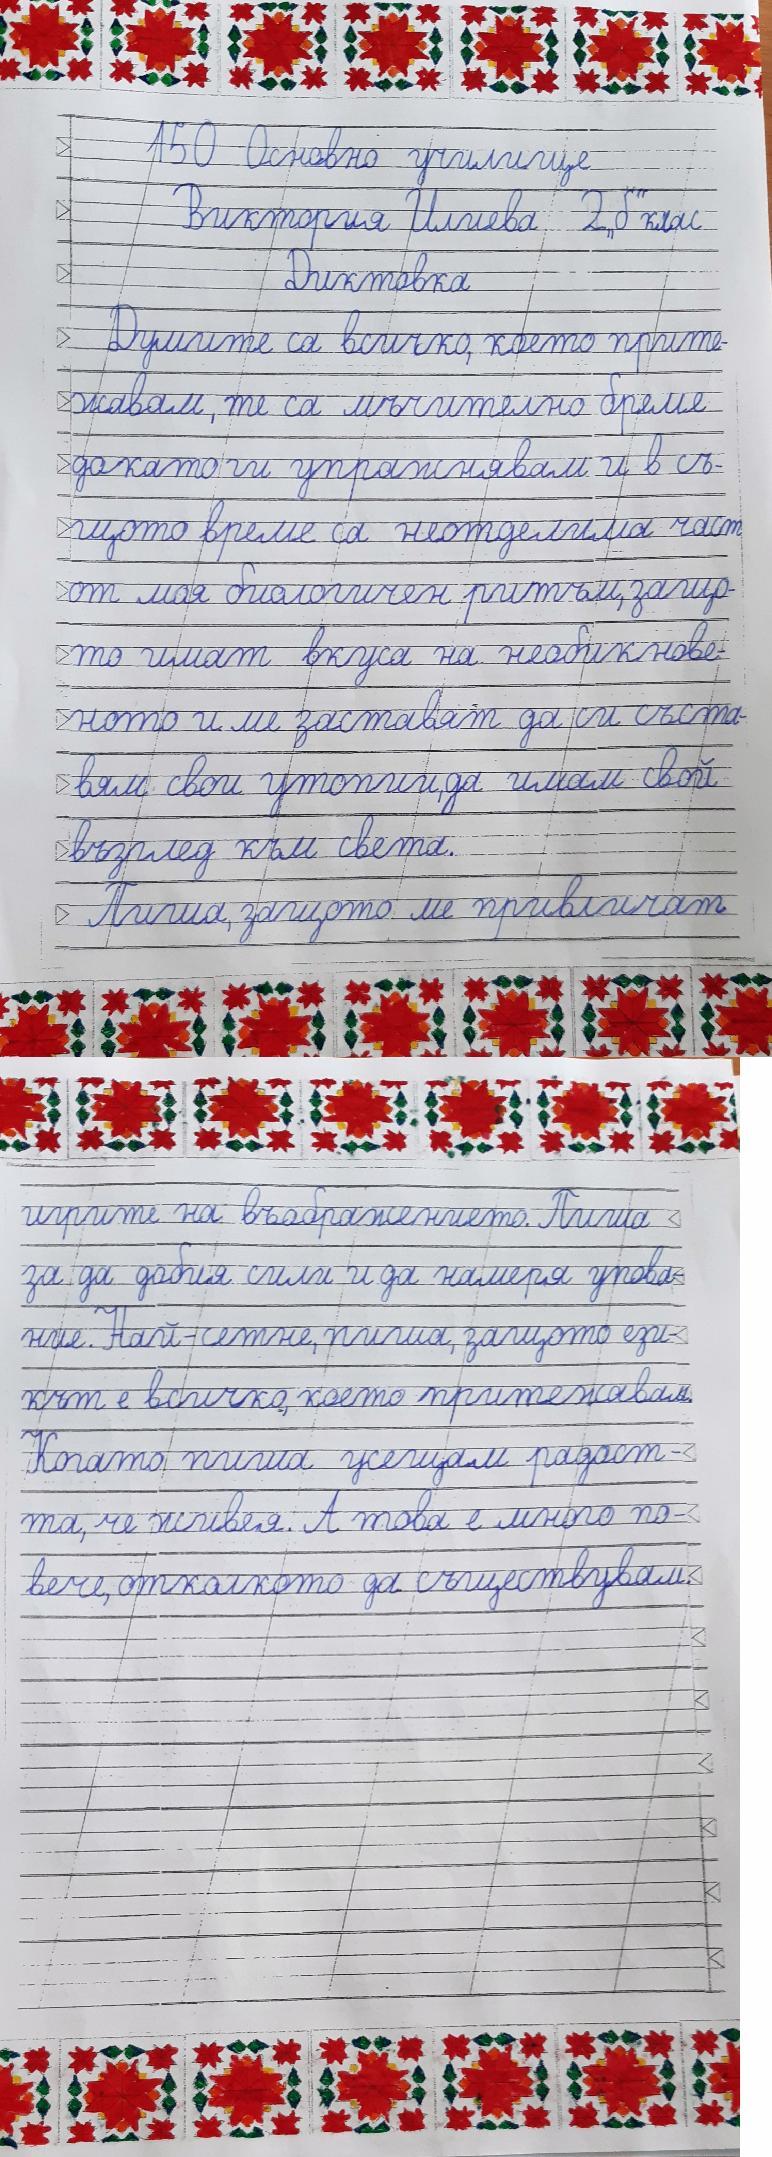 150 Основно училище
Виктория Илиева 2 „б" клас
Диктовка
Думите са всичко, което прите-
жавам, те са мъчително бреме
докато ги упражнявам и в съ-
щото време са неотделима част
от моя биологичен ритъм, защо-
то имат вкуса на необикнове-
ното и ме заставят да си съста-
вям свои утопии, да имам свой
възглед към света.
Пиша, защото ме привличат
игрите на въображението. Пиша
за да добия сили и да намеря упова-
ние. Най-сетне, пиша, защото ези-
кът е всичко, което притежавам.
Когато пиша усещам радост-
та, че живея. А това е много по-
вече, отколкото да съществувам.